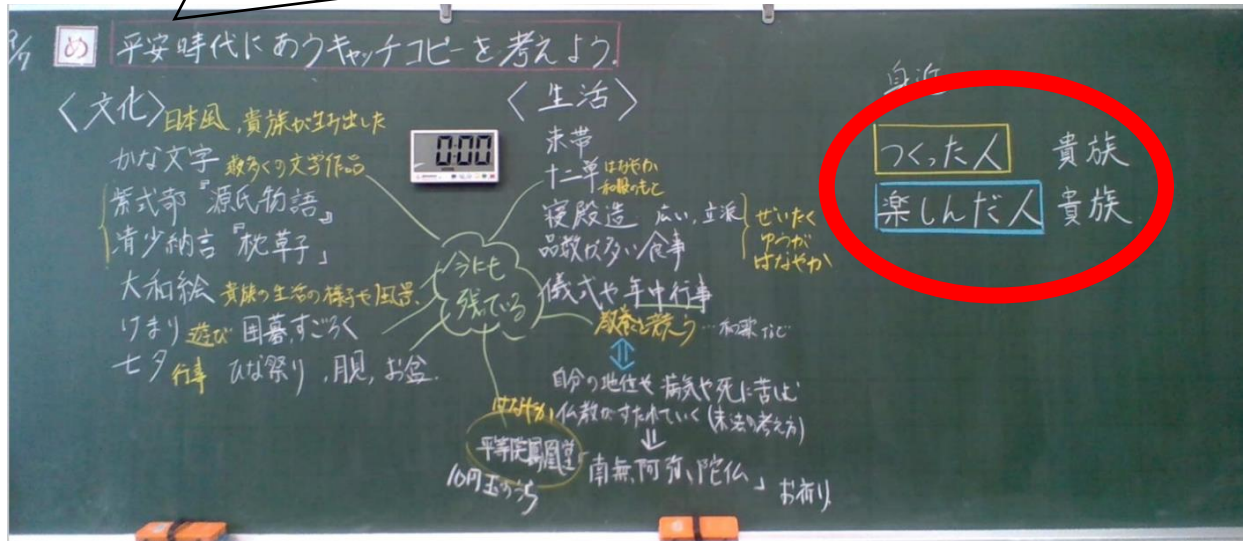 め 平安時代にあうキャッチコピーを考えよう.
〈文化〉日本風,貴族が生み出した
かな文字 数多くの文学作品
紫式部『源氏物語』
清少納言『枕草子』
大和絵 貴族の生活の様子や風景.
けまり 遊び 囲碁,すごろく
七夕 行事 ひな祭り,月見,お盆.
0:00
今にも
残っている
〈生活〉
束帯
十二単 はなやか
和服のもと
寝殿造 広い,立派
品数が多い食事
ぜいたく
ゆうが
はなやか
儀式や年中行事
教養を競う…和歌など
自分の地位や病気や死に苦しむ
仏教がすたれていく(末法の考え方)
はなやか
平等院鳳凰堂
10円玉のうら
南無阿弥陀仏」お祈り
身近
つくった人 貴族
楽しんだ人 貴族